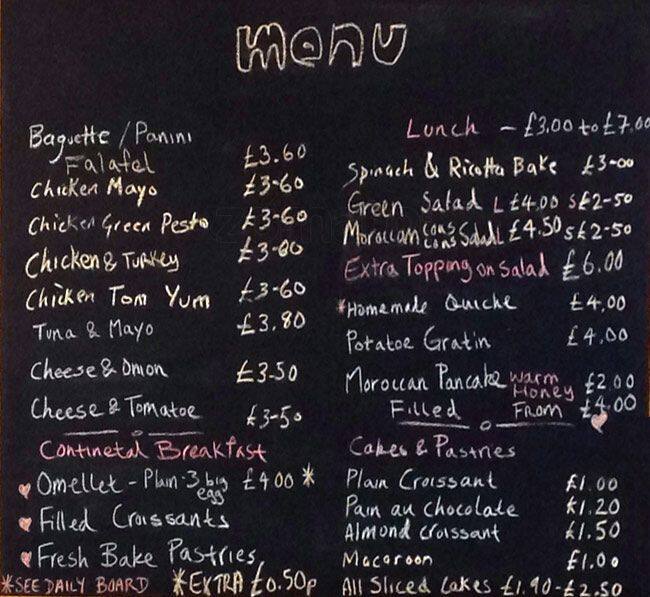 menu
Baguette / Panini
Falafel £3.60
Chicken Mayo £3-60
Chicken Green Pesto £3-60
Chicken & Turkey £3-80
Chicken Tom Yum £3-60
Tuna & Mayo £3.80
Cheese & Onion £3-50
Cheese & Tomatoe £3-50
Continetal Breakfast
Omellet - Plain - 3 big egg £4.00 *
Filled Croissants
Fresh Bake Pastries
*SEE DAILY BOARD *EXTRA £0.50p
Lunch - £3.00 to £7.00
Spinach & Ricotta Bake £3-00
Green Salad L £4.00 S £2-50
Moroccan cous cous Salad L £4.50 S £2-50
Extra Topping on Salad £6.00
*Homemade Quiche £4.00
Potatoe Gratin £4.00
Moroccan Pancake warm Honey £2.00
Filled From £4.00
Cakes & Pastries
Plain Croissant £1.00
Pain au chocolate £1.20
Almond croissant £1.50
Macaroon £1.00
All Sliced Cakes £1.90 - £2.50